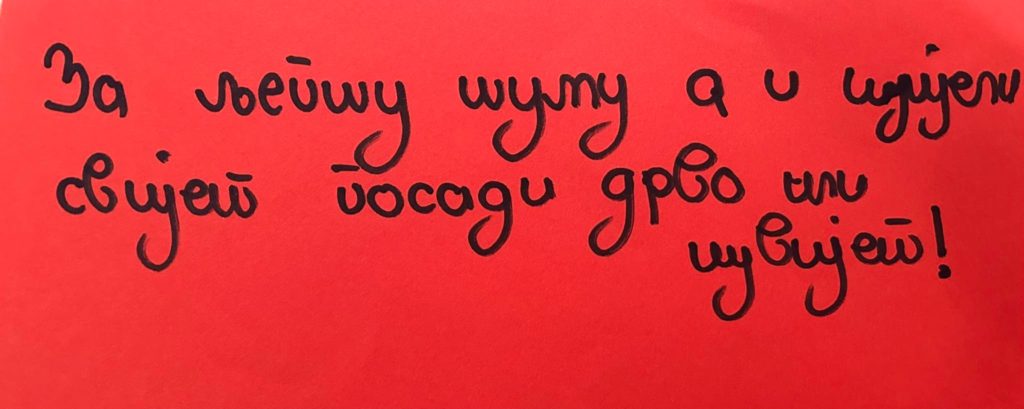 За љепшу шуму а и цијели
свијет посади дрво или
цвијет!